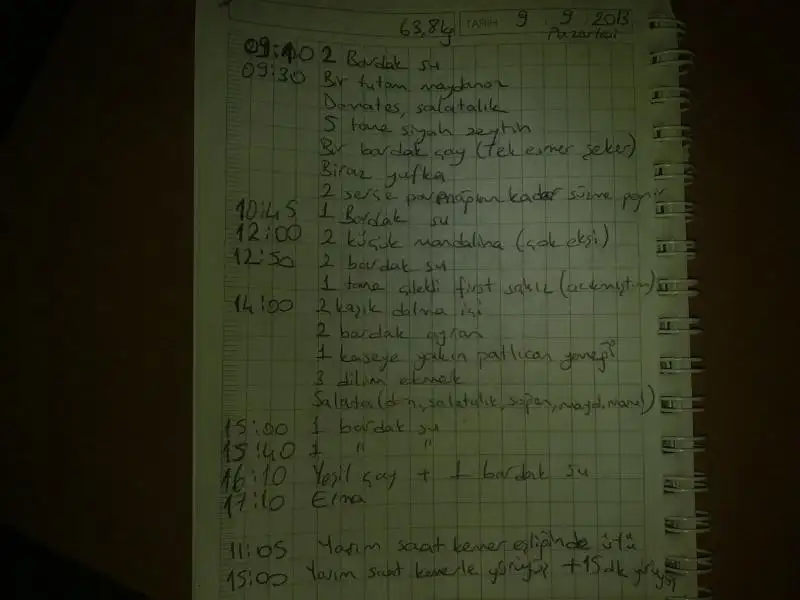 63,8kg TARİH 9 9 2013
Pazartesi
09:10 2 Bardak su
09:30 Bir tutam maydanoz
Domates, salatalık
5 tane siyah zeytin
Bir bardak çay (tek esmer şeker)
Biraz yufka
2 serçe parmağım kadar süzme peynir
10:45 1 Bardak su
12:00 2 küçük mandalina (çok ekşi)
12:50 2 bardak su
1 tane çilekli first sakız (acıkmıştım)
14:00 2 kaşık dolma içi
2 bardak ayran
1 kaseye yakın patlıcan yemeği
3 dilim ekmek
Salata (dom, salatalık, soğan, mayd, marul)
15:00 1 bardak su
15:40 1 " "
16:10 Yeşil çay + 1 bardak su
17:10 Elma
11:05 Yarım saat kemer eşliğinde ütü
15:00 Yarım saat kemerle yürüyüş +15 dk yürüyüş